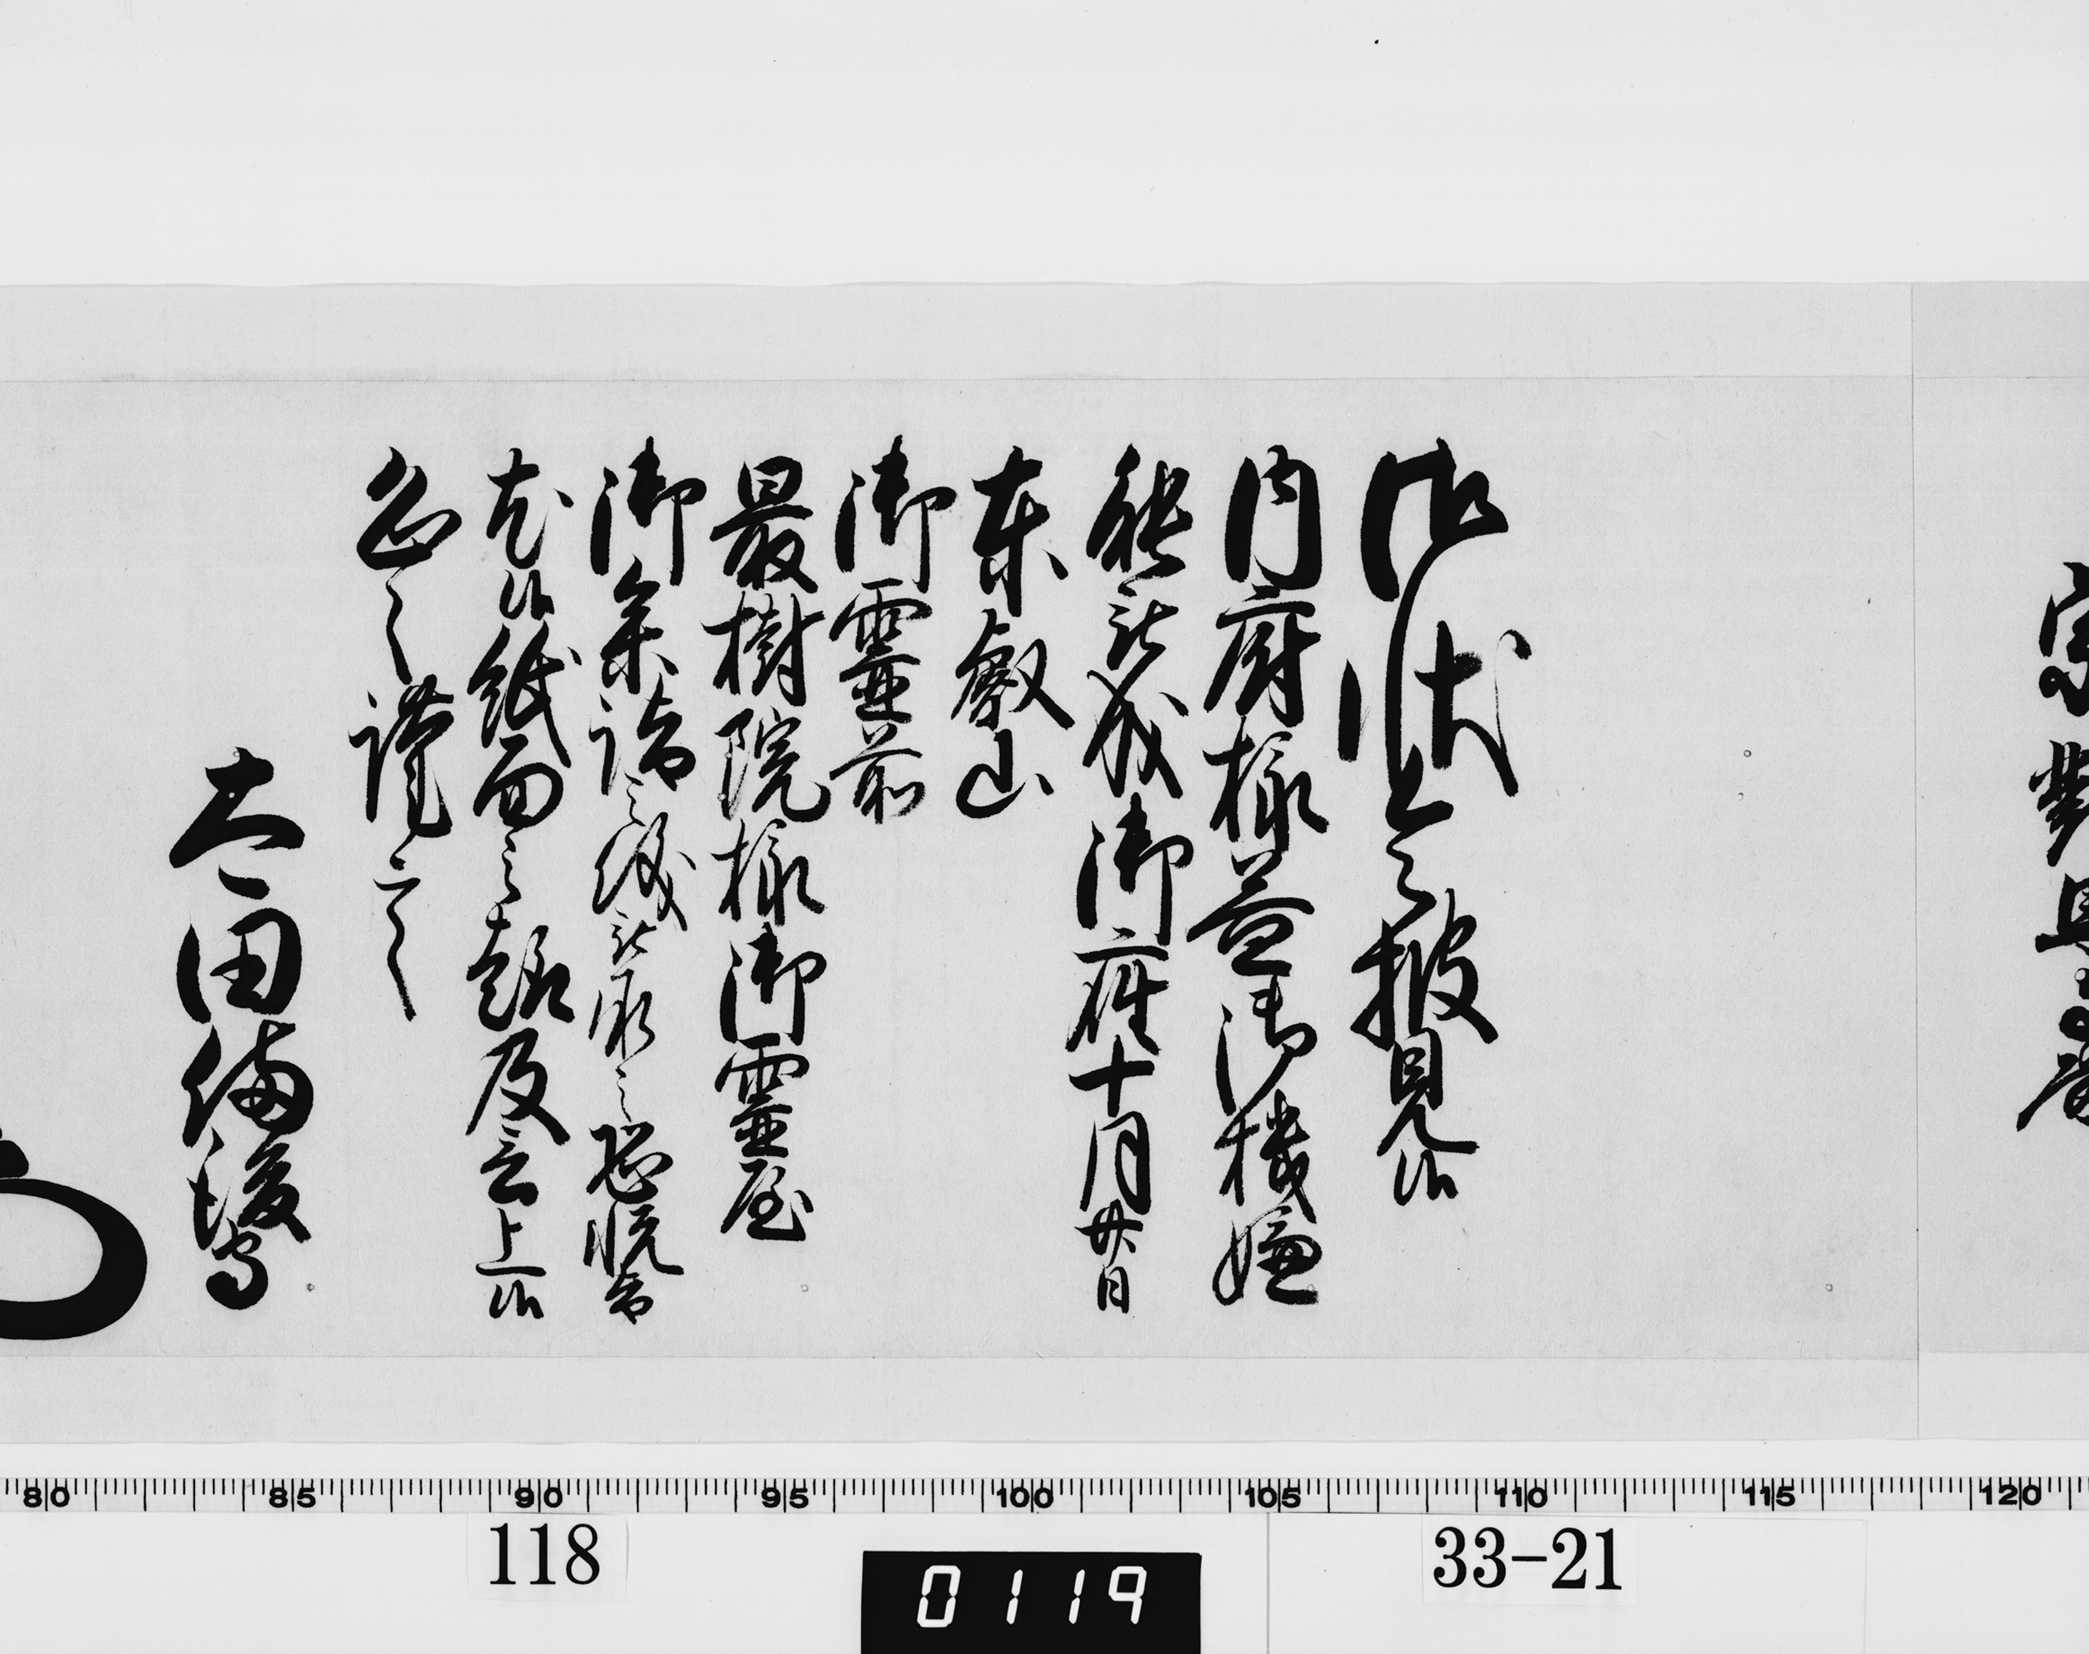 宗對馬守
御状令披見候
内府様益御機嫌
能被成御座十月廿日
東叡山
御靈前
最樹院様御靈屋
御參詣之儀被承之恐悦旨
尤候紙面之趣及言上候
恐々謹言
太田備後守
80 85 90 95 100 105 110 115 120
118
0119
33-21